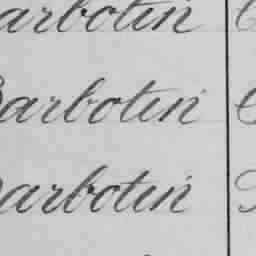 Barbotin
Barbotin
Barbotin